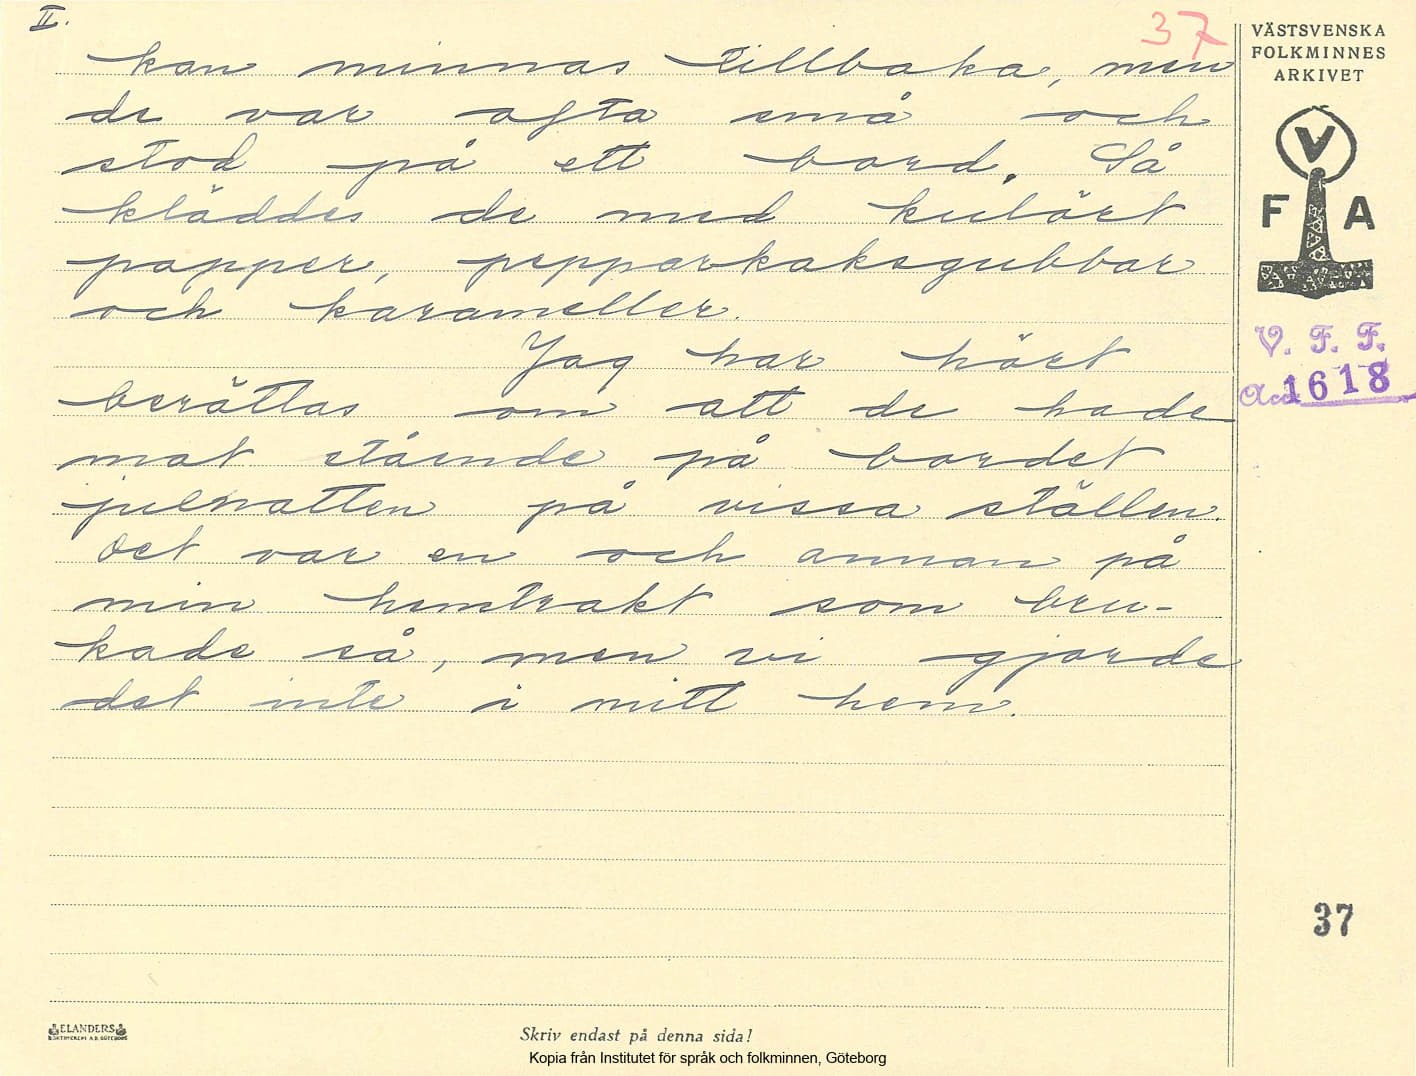 II.
37
kan minnas tillbaka, men
de var ofta små och
stod på ett bord. Så
kläddes de med kulört
papper, pepparkaksgubbar
och karameller.
Jag har hört
berättas om att de hade
mat stående på bordet
julnatten på vissa ställen.
Det var en och annan på
min hemtrakt som bru-
kade så, men vi gjorde
det inte i mitt hem.
VÄSTSVENSKA
FOLKMINNES
ARKIVET
V
F A
V. F. F.
Acc 1618
37
ELANDERS
BOKTRYCKERI A.B. GÖTEBORG
Skriv endast på denna sida!
Kopia från Institutet för språk och folkminnen, Göteborg